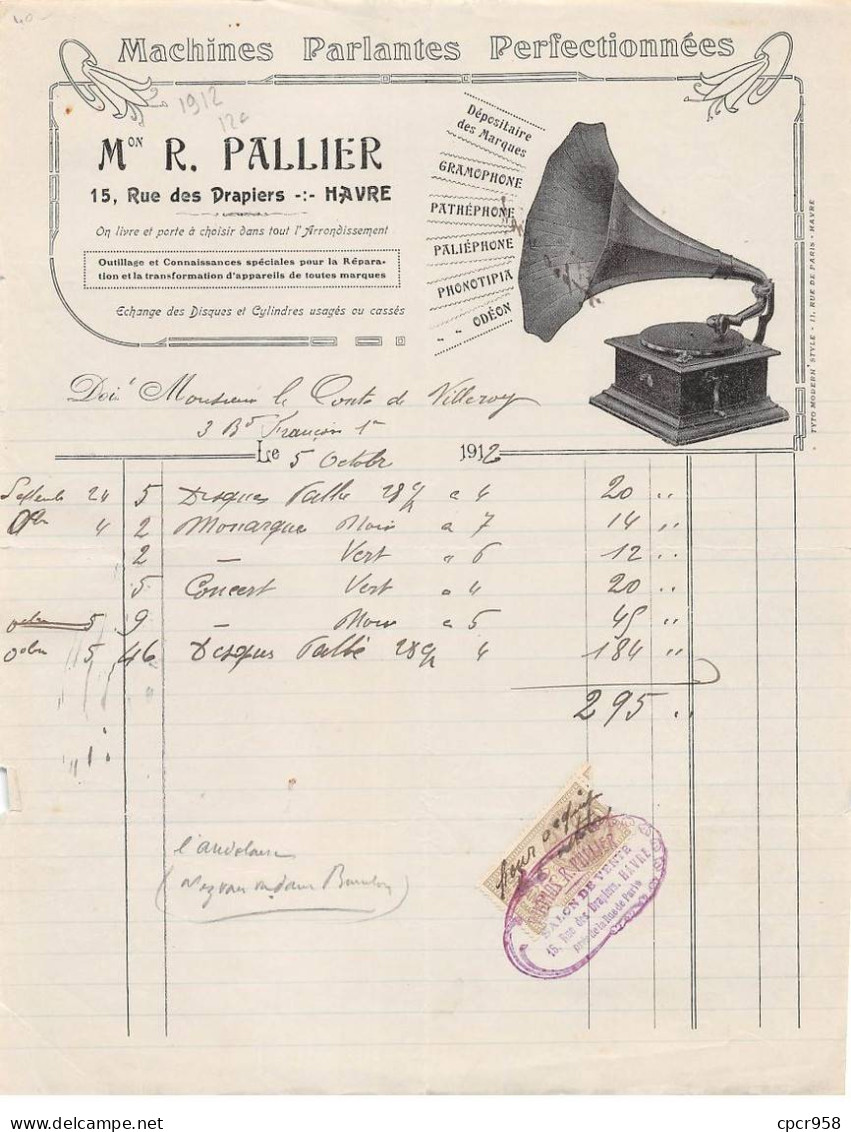 40
Machines Parlantes Perfectionnées
1912
12e
Mon R. PALLIER
15, Rue des Drapiers -:- HAVRE
On livre et porte à choisir dans tout l'Arrondissement
Outillage et Connaissances spéciales pour la Répara-
tion et la transformation d'appareils de toutes marques
Echange des Disques et Cylindres usagés ou cassés
Dépositaire
des Marques
GRAMOPHONE
PATHÉPHONE
PALIÉPHONE
PHONOTIPIA
ODÉON
TYTO MODERN' STYLE - 11, RUE DE PARIS - HAVRE
Doit Monsieur le Conte de Villeroy
3 Bd François 1er
Le 5 Octobr 1912
24 5 Disques Pathé 28 a 4 20 "
4 2 Monarque Noir a 7 14 "
2 — Vert " 6 12 "
5 Concert Vert " 4 20 "
5 9 — Noir a 5 45 "
5 46 Disques Pathé 28 4 184 "
295 "
Pour acquit
R. PALLIER
SALON DE VENTE
15, Rue des Drapiers, HAVRE
près de la Rue de Paris
cpcr958